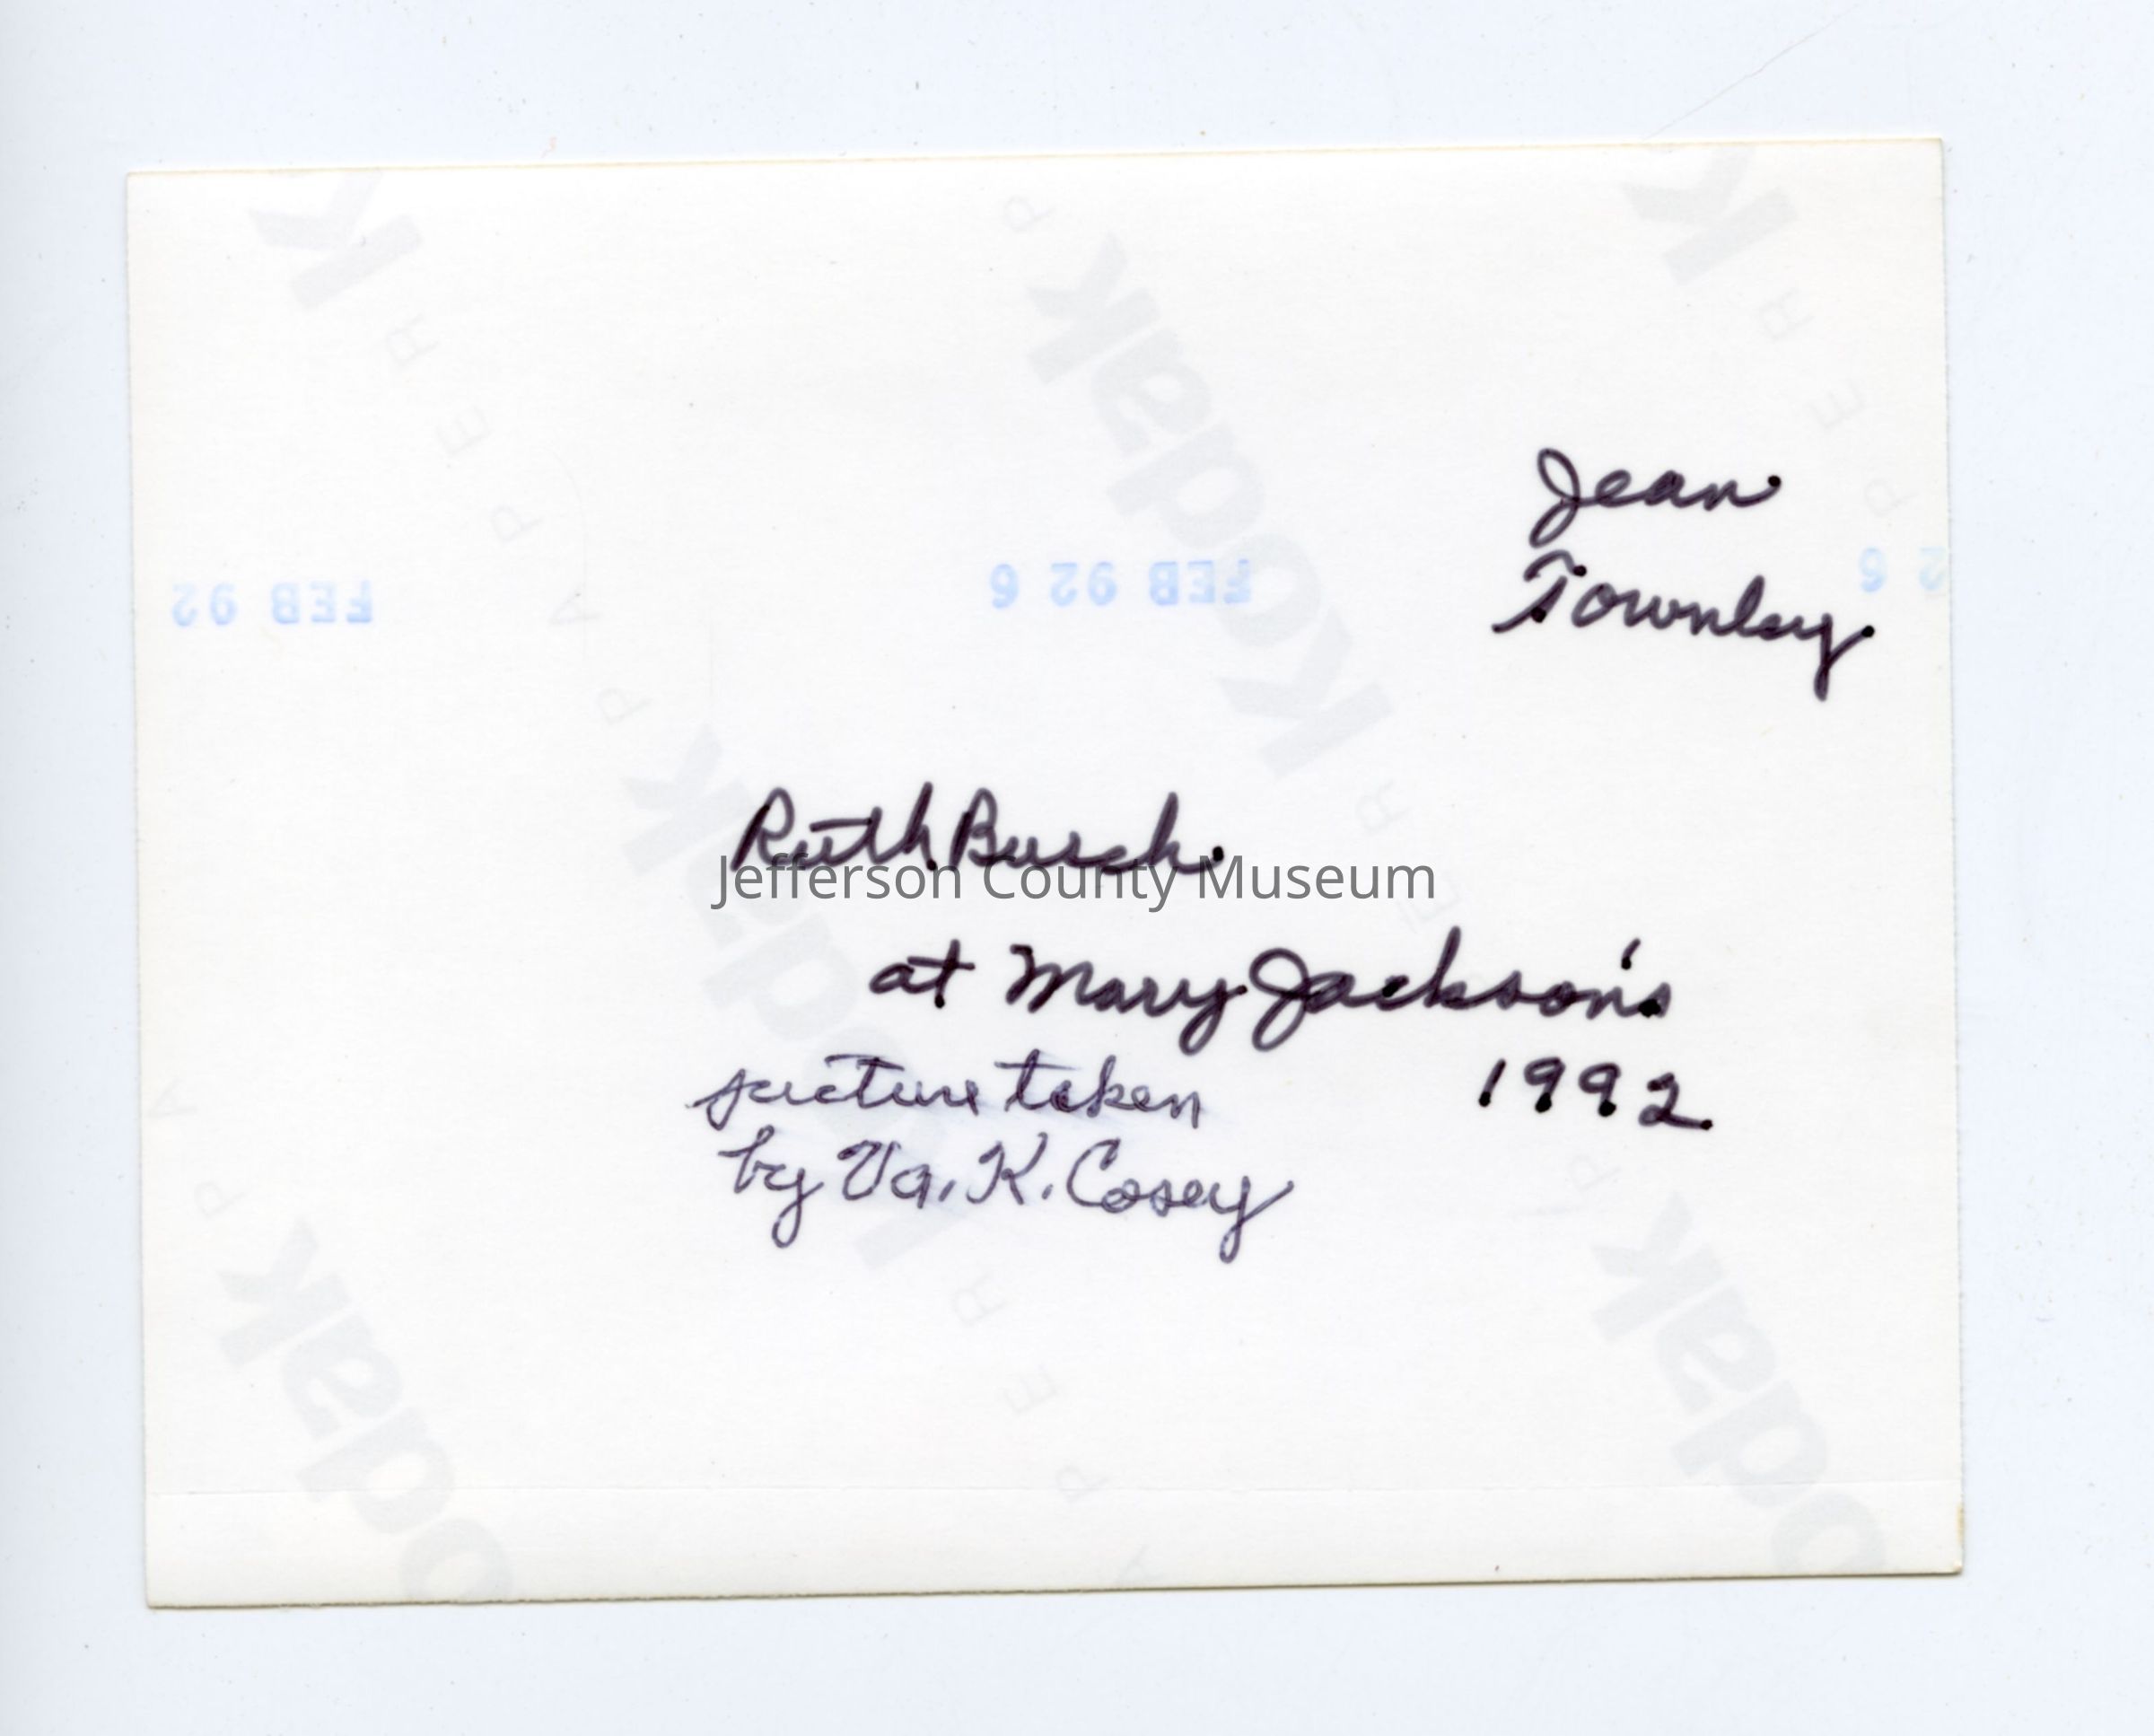 Jean
Townley
FEB 92
FEB 92 6
2 6
Ruth Busch
Jefferson County Museum
at Mary Jackson's
1992
picture taken
by Va. K. Cosey
Kodak
PAPER